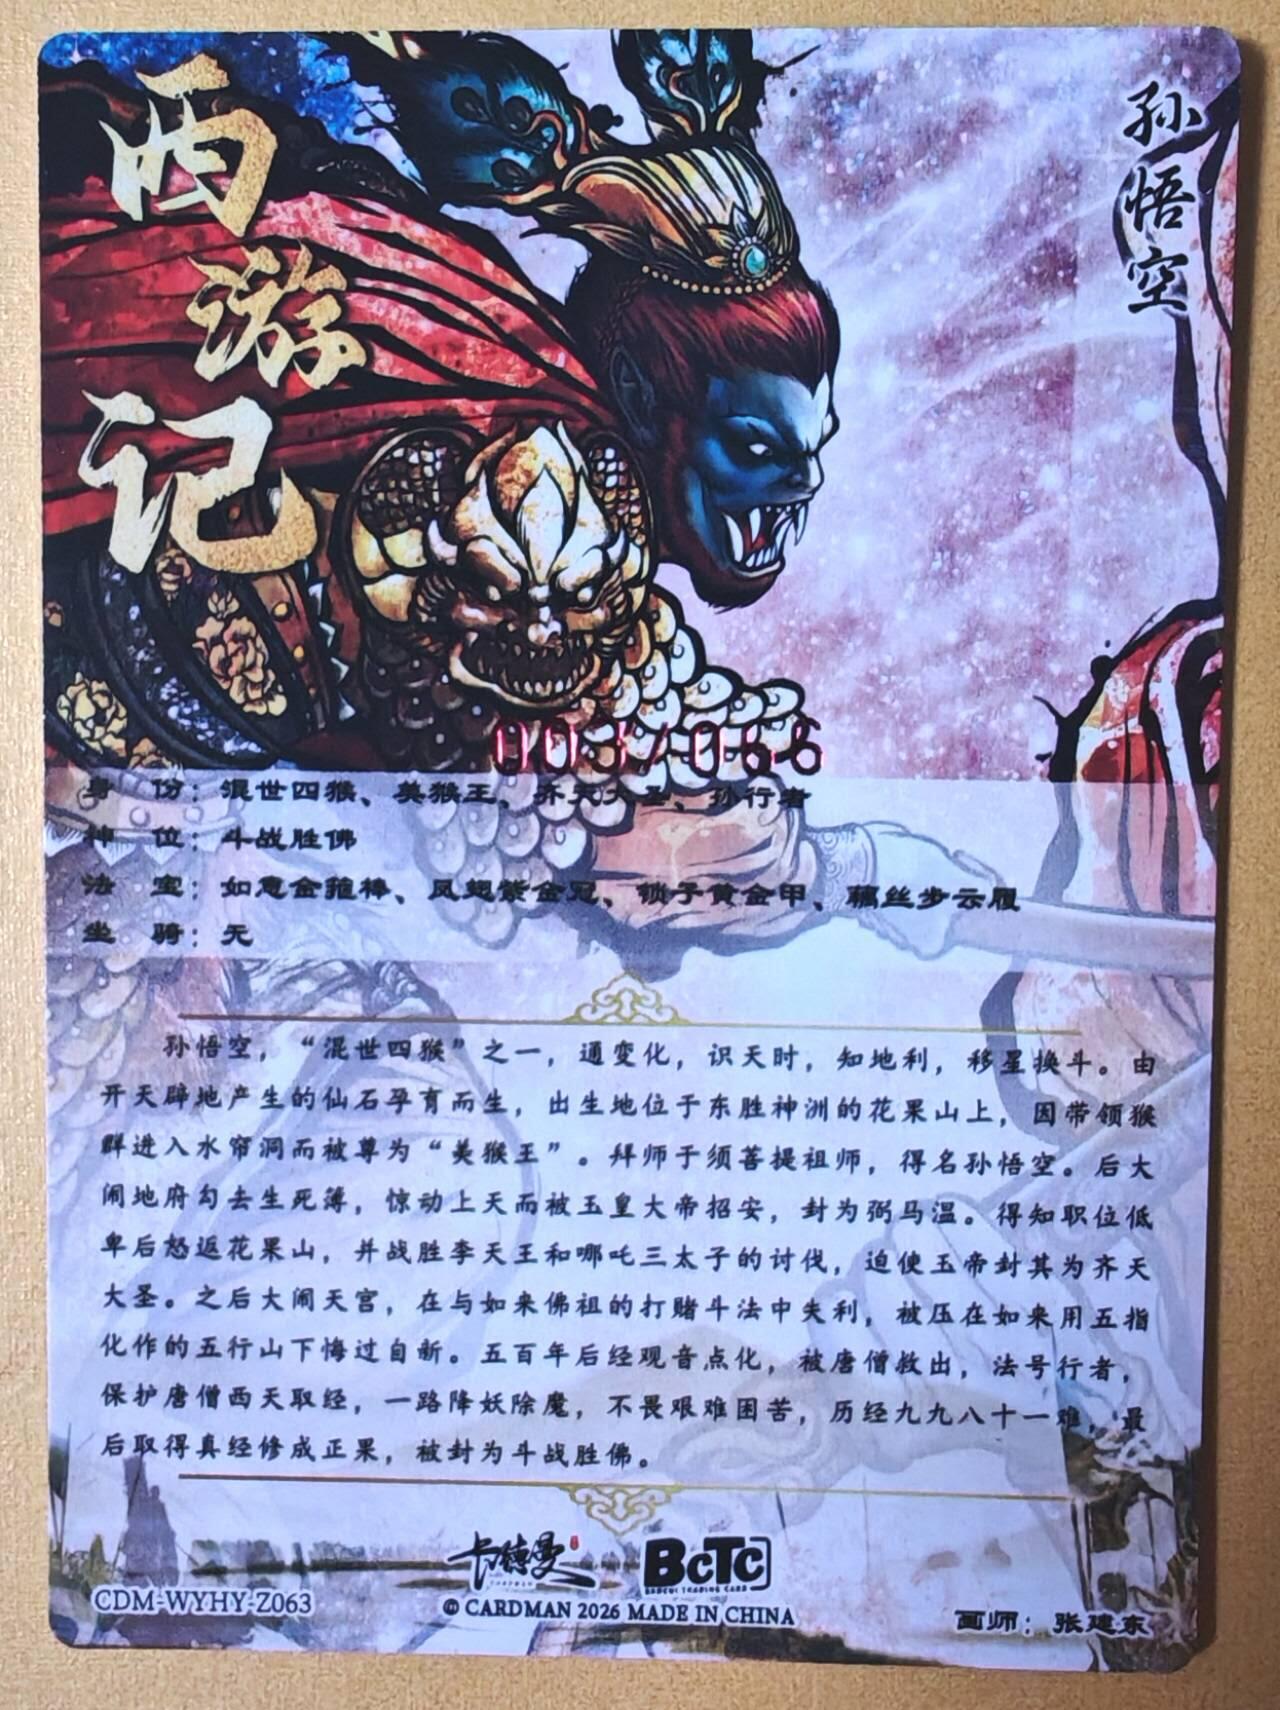 西游记
孙悟空
003/066
身 份：混世四猴、美猴王、齐天大圣、孙行者
神 位：斗战胜佛
法 宝：如意金箍棒、凤翅紫金冠、锁子黄金甲、藕丝步云履
坐 骑：无
孙悟空，“混世四猴”之一，通变化，识天时，知地利，移星换斗。由
开天辟地产生的仙石孕育而生，出生地位于东胜神洲的花果山上，因带领猴
群进入水帘洞而被尊为“美猴王”。拜师于须菩提祖师，得名孙悟空。后大
闹地府勾去生死簿，惊动上天而被玉皇大帝招安，封为弼马温。得知职位低
卑后怒返花果山，并战胜李天王和哪吒三太子的讨伐，迫使玉帝封其为齐天
大圣。之后大闹天宫，在与如来佛祖的打赌斗法中失利，被压在如来用五指
化作的五行山下悔过自新。五百年后经观音点化，被唐僧救出，法号行者，
保护唐僧西天取经，一路降妖除魔，不畏艰难困苦，历经九九八十一难，最
后取得真经修成正果，被封为斗战胜佛。
卡德曼
CARDMAN
BCTC
CDM-WYHY-Z063
© CARDMAN 2026 MADE IN CHINA
画师：张建东